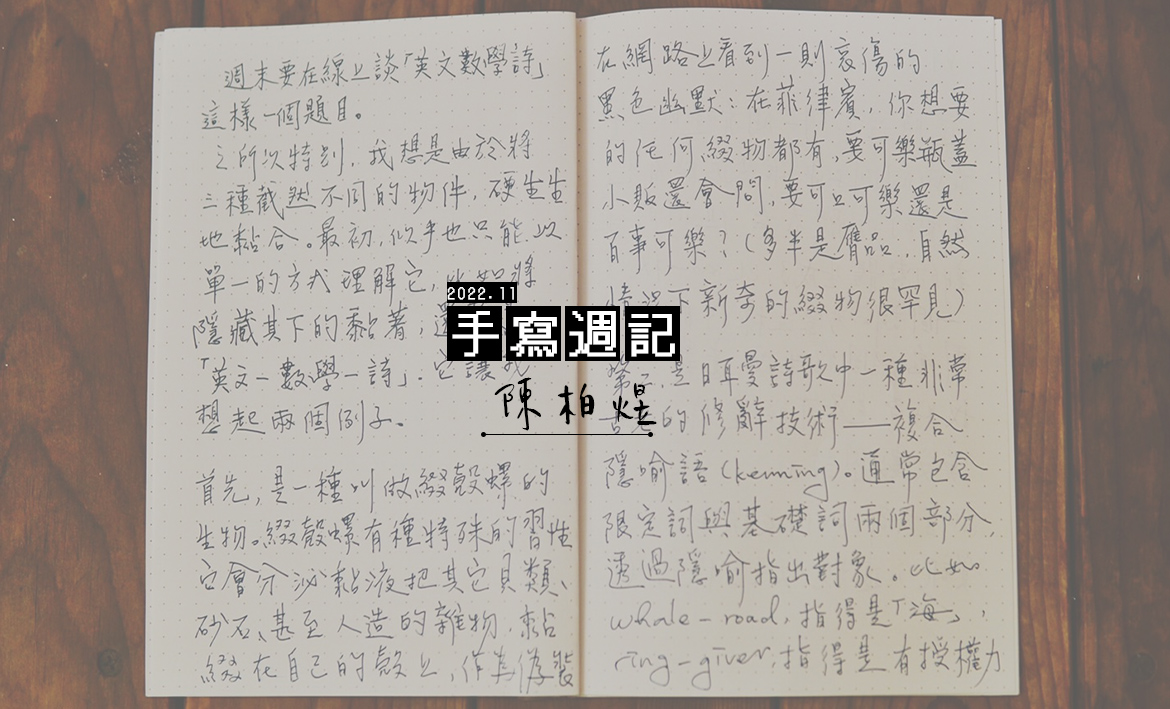 週末要在線上談「英文數學詩」
這樣一個題目。
之所以特別，我想是由於將
三種截然不同的物件，硬生生
地黏合。最初，似乎也只能以
單一的方式理解它，
隱藏其下的黏著，
「英文－數學－詩」. 它讓我
想起兩個例子。
首先，是一種叫做綴殼螺的
生物。綴殼螺有種特殊的習性
它會分泌黏液把其它貝類、
砂石、甚至人造的雜物，黏
綴在自己的殼上，作為偽裝
在網路上看到一則哀傷的
黑色幽默：在菲律賓，你想要
的任何綴物都有，要可樂瓶蓋
小販還會問，要可口可樂還是
百事可樂？（多半是贗品，自然
情況下新奇的綴物很罕見）
是日耳曼詩歌中一種非常
的修辭技術——複合
隱喻語（kenning）。通常包含
限定詞與基礎詞兩個部分，
透過隱喻指出對象。比如
whale-road，指得是「海」，
ring-giver，指得是有授權力
2022.11
手寫週記
陳柏煜